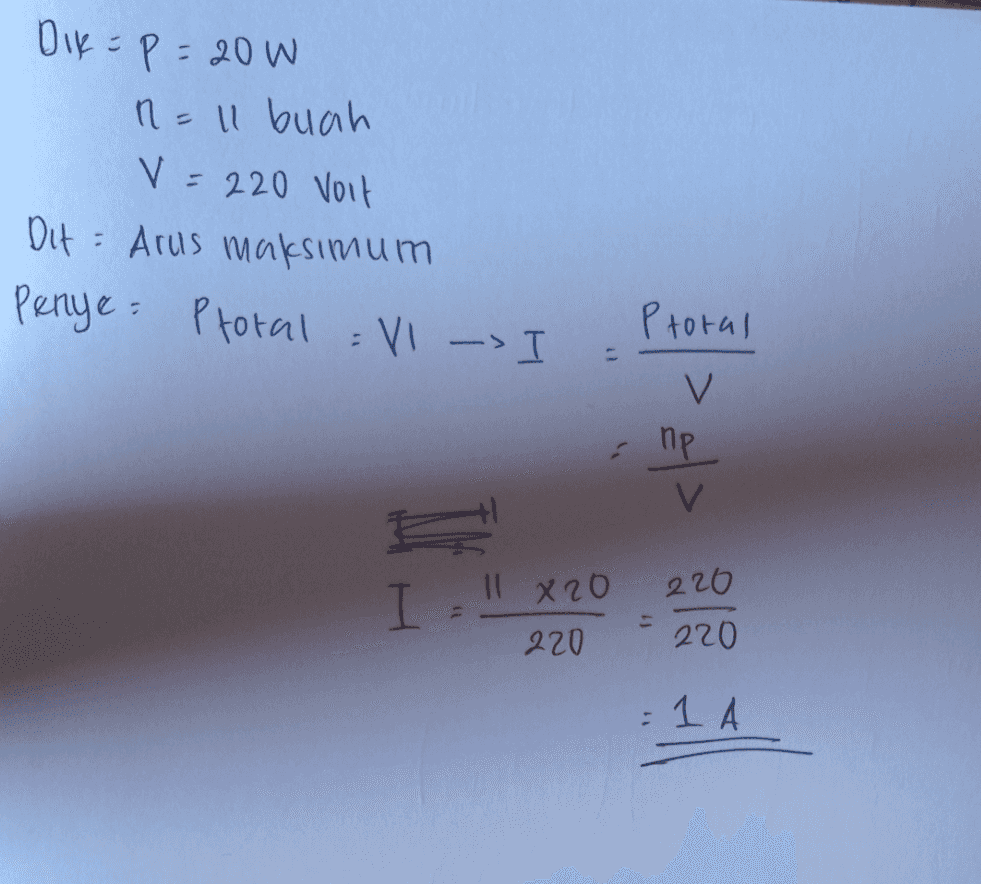 Dik = P = 20 W
n = 11 buah
V = 220 Volt
Dit = Arus maksimum
Penye = Ptotal = VI -> I = Ptotal / V
= np / V
I = 11 x 20 / 220 = 220 / 220
= 1 A